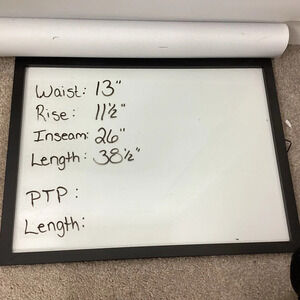 Waist: 13"
Rise: 11½"
Inseam: 26"
Length: 38½"
PTP:
Length: